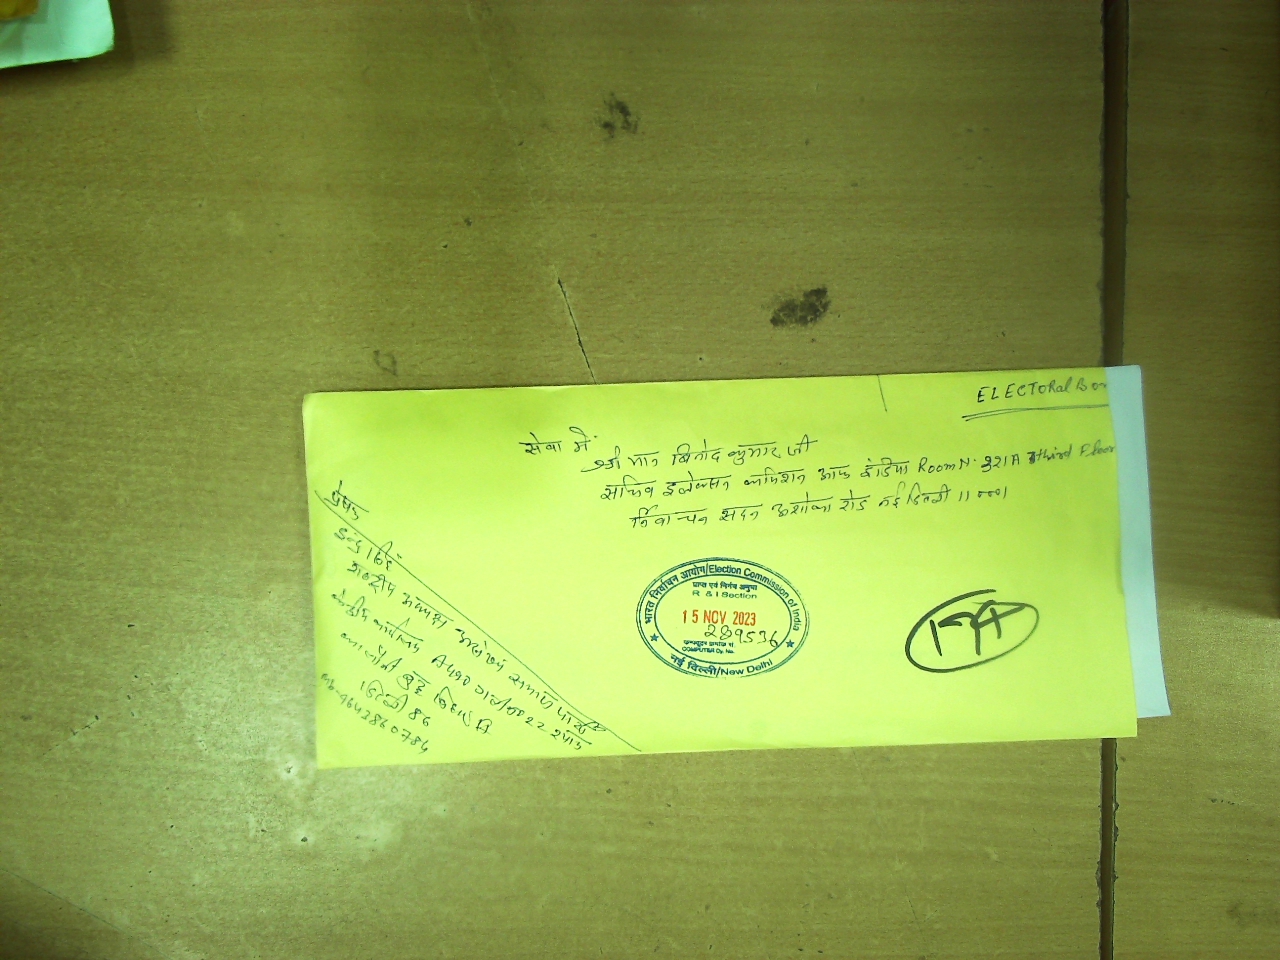 ELECTORal Bon
सेवा में
श्री मान बिनोद कुमार जी
सचिव इलेक्सन कमिशन आफ इंडिया Room N. 321A third Floor
निर्वाचन सदन अशोका रोड नई दिल्ली 110001
प्रेषक
इन्द्र सिंह
राष्ट्रीय अध्यक्ष समाज पार्टी
केन्द्रीय कार्यालय
कालोनी बुद्ध विहार
दिल्ली 86
mb-9643860784
भारत निर्वाचन आयोग/Election Commission of India
प्राप्त एवं निर्गम अनुभाग
R & I Section
15 NOV 2023
289536
COMPUTER Dy. No.
नई दिल्ली/New Delhi